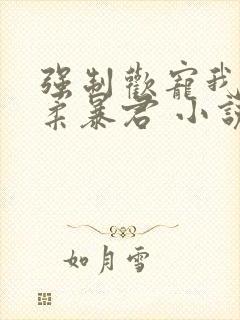 強制歡寵我
柔暴君 小說
如月雪